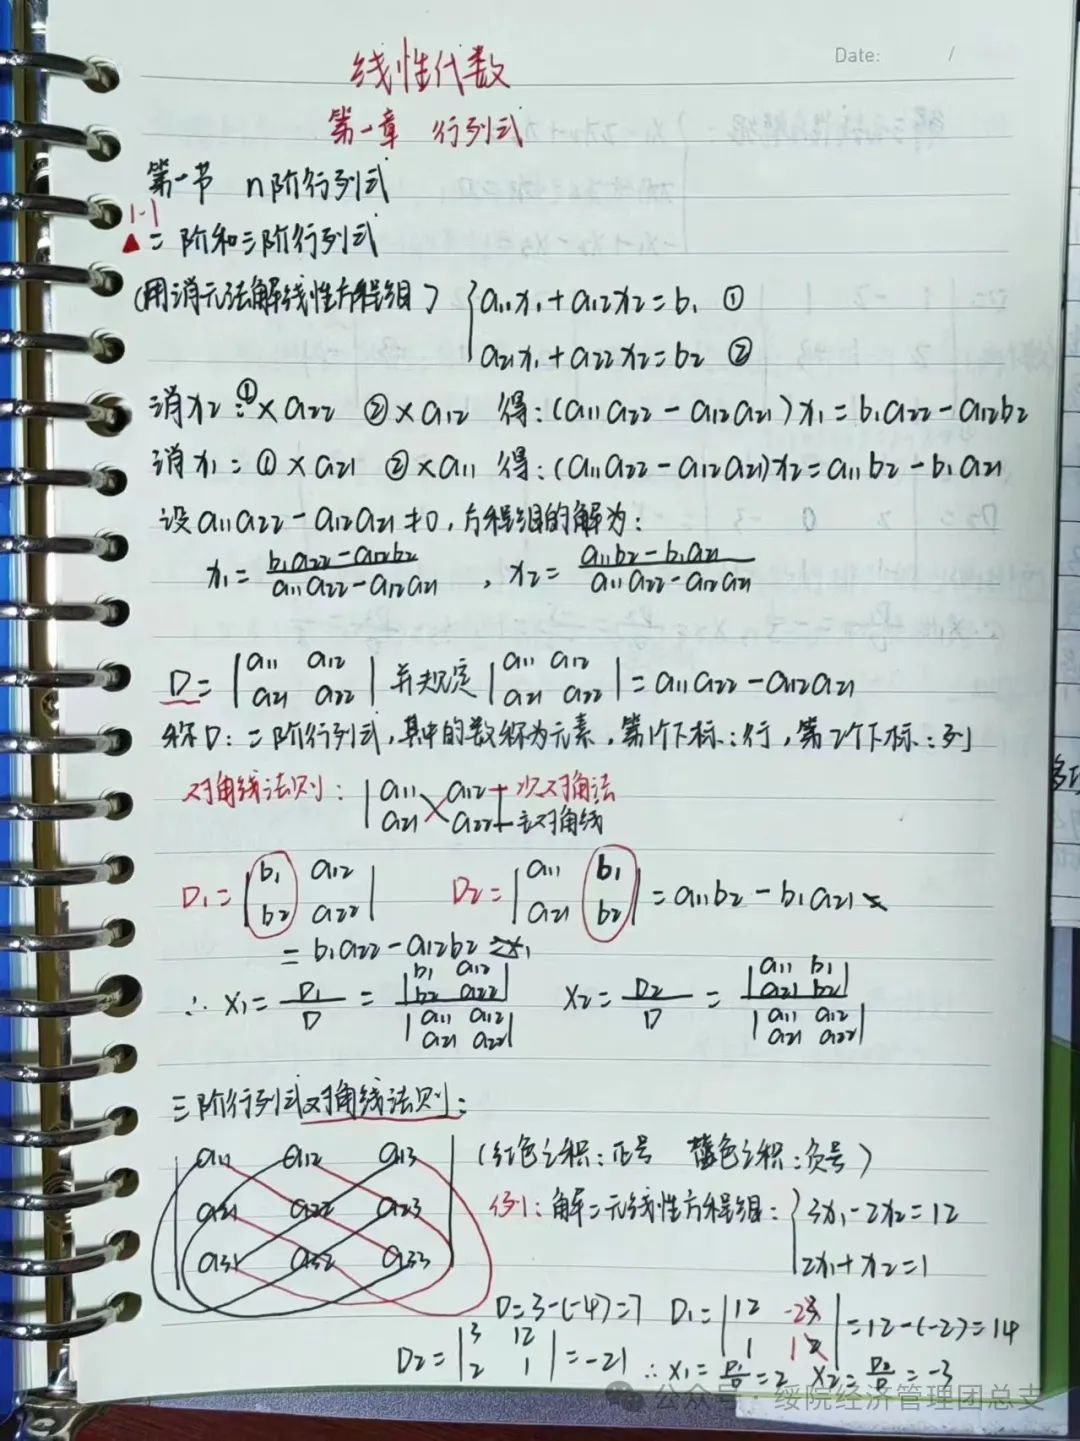 Date: /
线性代数
第一章 行列式
第一节 n阶行列式
1-1
▲二阶和三阶行列式
(用消元法解线性方程组) { a11x1+a12x2=b1 ①
a21x1+a22x2=b2 ②
消x2:①×a22 ②×a12 得:(a11a22-a12a21)x1=b1a22-a12b2
消x1:①×a21 ②×a11 得:(a11a22-a12a21)x2=a11b2-b1a21
设a11a22-a12a21≠0,方程组的解为:
x1=(b1a22-a12b2)/(a11a22-a12a21), x2=(a11b2-b1a21)/(a11a22-a12a21)
D=|a11 a12; a21 a22| 并规定 |a11 a12; a21 a22|=a11a22-a12a21
称D:二阶行列式,其中的数称为元素,第1个下标:行,第2个下标:列
对角线法则: |a11 a12; a21 a22| 次对角法
主对角线
D1=|b1 a12; b2 a22| D2=|a11 b1; a21 b2|=a11b2-b1a21
=b1a22-a12b2
∴ x1=D1/D=|b1 a12; b2 a22|/|a11 a12; a21 a22| x2=D2/D=|a11 b1; a21 b2|/|a11 a12; a21 a22|
三阶行列式对角线法则:
|a11 a12 a13| (红色之积:正号 蓝色之积:负号)
a21 a22 a23 例1:解二元线性方程组: { 3x1-2x2=12
a31 a32 a33 2x1+x2=1
D=3-(-4)=7 D1=|12 -2; 1 1|=12-(-2)=14
D2=|3 12; 2 1|=-21 ∴x1=D1/D=2 x2=D2/D=-3
公众号·绥院经济管理团总支